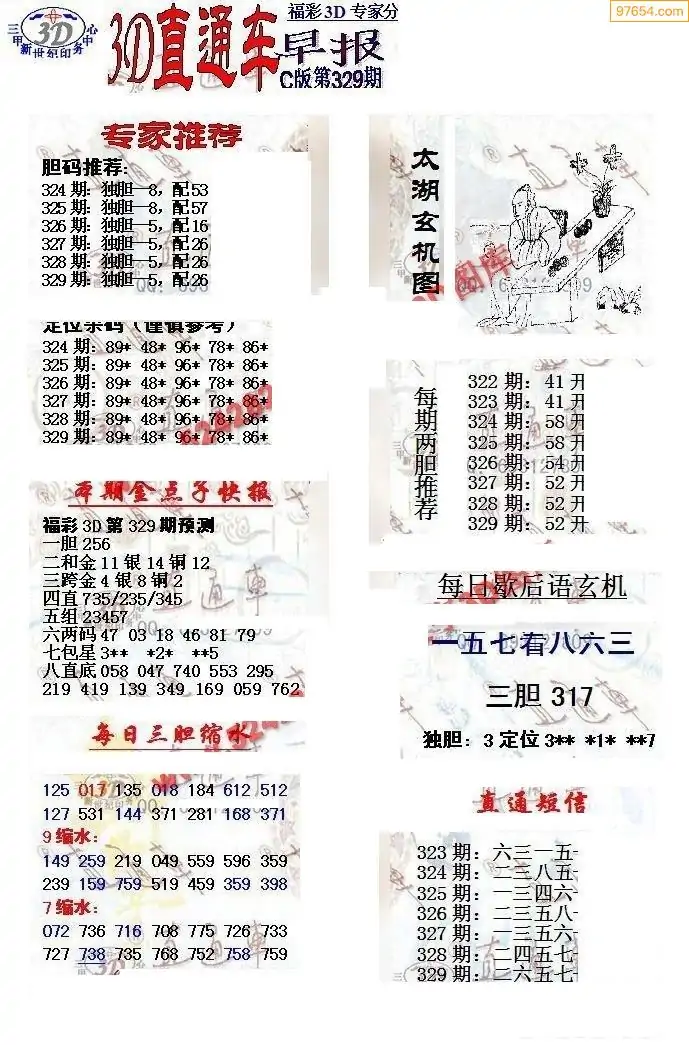 97654.com
福彩3D 专家分
三甲 3D 中心
新世纪印务
3D直通车 早报
C版第329期
专家推荐
胆码推荐:
324期: 独胆—8, 配53
325期: 独胆—8, 配57
326期: 独胆—5, 配16
327期: 独胆—5, 配26
328期: 独胆—5, 配26
329期: 独胆—5, 配26
定位杀码（谨慎参考）
324期: 89* 48* 96* 78* 86*
325期: 89* 48* 96* 78* 86*
326期: 89* 48* 96* 78* 86*
327期: 89* 48* 96* 78* 86*
328期: 89* 48* 96* 78* 86*
329期: 89* 48* 96* 78* 86*
本期金点子快报
福彩3D第329期预测
一胆256
二和金11银14铜12
三跨金4银8铜2
四直735/235/345
五组23457
六两码47 03 18 46 81 79
七包星3** *2* **5
八直底058 047 740 553 295
219 419 139 349 169 059 762
每日三胆缩水
125 017 135 018 184 612 512
127 531 144 371 281 168 371
9缩水:
149 259 219 049 559 596 359
239 159 759 519 459 359 398
7缩水:
072 736 716 708 775 726 733
727 738 735 768 752 758 759
太湖玄机图
每期两胆推荐
322期: 41开
323期: 41开
324期: 58开
325期: 58开
326期: 54开
327期: 52开
328期: 52开
329期: 52开
每日歇后语玄机
一五七看八六三
三胆 317
独胆: 3 定位3** *1* **7
直通短信
323期: 六三一五
324期: 二三八五
325期: 一三四六
326期: 二三五八
327期: 一三五六
328期: 二四五七
329期: 二六五七